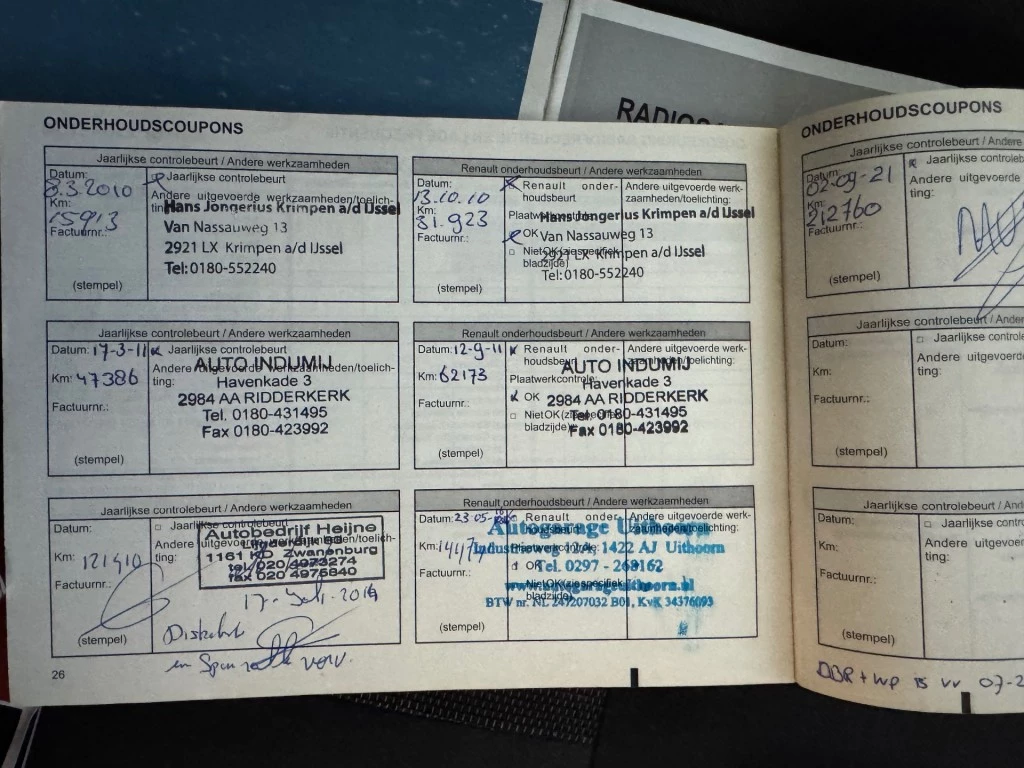 RADIOSA
ONDERHOUDSCOUPONS
Jaarlijkse controlebeurt / Andere werkzaamheden
Datum:
8.3.2010
Km:
15913
Factuurnr.:
(stempel)
Jaarlijkse controlebeurt
Andere uitgevoerde werkzaamheden/toelich-
ting:
Hans Jongerius Krimpen a/d IJssel
Van Nassauweg 13
2921 LX Krimpen a/d IJssel
Tel: 0180-552240
Renault onderhoudsbeurt / Andere werkzaamheden
Datum:
13.10.10
Km:
31.923
Factuurnr.:
(stempel)
Renault onder-
houdsbeurt
Plaatwerkcontrole:
OK
Niet OK (zie specifiek
bladzijde)
Andere uitgevoerde werk-
zaamheden/toelichting:
Hans Jongerius Krimpen a/d IJssel
Van Nassauweg 13
2921 LX Krimpen a/d IJssel
Tel: 0180-552240
Jaarlijkse controlebeurt / Andere werkzaamheden
Datum: 17-3-11
Km: 47386
Factuurnr.:
(stempel)
Jaarlijkse controlebeurt
Andere uitgevoerde werkzaamheden/toelich-
ting:
AUTO INDUMIJ
Havenkade 3
2984 AA RIDDERKERK
Tel. 0180-431495
Fax 0180-423992
Renault onderhoudsbeurt / Andere werkzaamheden
Datum: 12-9-11
Km: 62173
Factuurnr.:
(stempel)
Renault onder-
houdsbeurt
Plaatwerkcontrole:
OK
Niet OK (zie specifiek
bladzijde)
Andere uitgevoerde werk-
zaamheden/toelichting:
AUTO INDUMIJ
Havenkade 3
2984 AA RIDDERKERK
Tel. 0180-431495
Fax 0180-423992
Jaarlijkse controlebeurt / Andere werkzaamheden
Datum:
Km: 121410
Factuurnr.:
(stempel)
Jaarlijkse controlebeurt
Andere uitgevoerde werkzaamheden/toelich-
ting:
Autobedrijf Heijne
1161 KD Zwanenburg
tel/020 4973274
fax 020 4975840
17-Juli-2014
en
Renault onderhoudsbeurt / Andere werkzaamheden
Datum: 23-05-
Km:
Factuurnr.:
(stempel)
Renault onder-
houdsbeurt
Plaatwerkcontrole:
OK
Niet OK (zie specifiek
bladzijde)
Andere uitgevoerde werk-
zaamheden/toelichting:
Autogarage Uithoorn
Industrieweg 1422 AJ Uithoorn
Tel. 0297 - 268162
www.autogarageuithoorn.nl
BTW nr. NL 247207032 B01, KvK 34376093
26
ONDERHOUDSCOUPONS
Jaarlijkse controlebeurt / Andere
Datum:
02-09-21
Km:
212760
Factuurnr.:
(stempel)
Jaarlijkse controleb
Andere uitgevoerde
ting:
Jaarlijkse controlebeurt / Ander
Datum:
Km:
Factuurnr.:
(stempel)
Jaarlijkse controle
Andere uitgevoerde
ting:
Jaarlijkse controlebeurt / Ander
Datum:
Km:
Factuurnr.:
(stempel)
Jaarlijkse controle
Andere uitgevoerde
ting:
DBR + WP vv 07-2